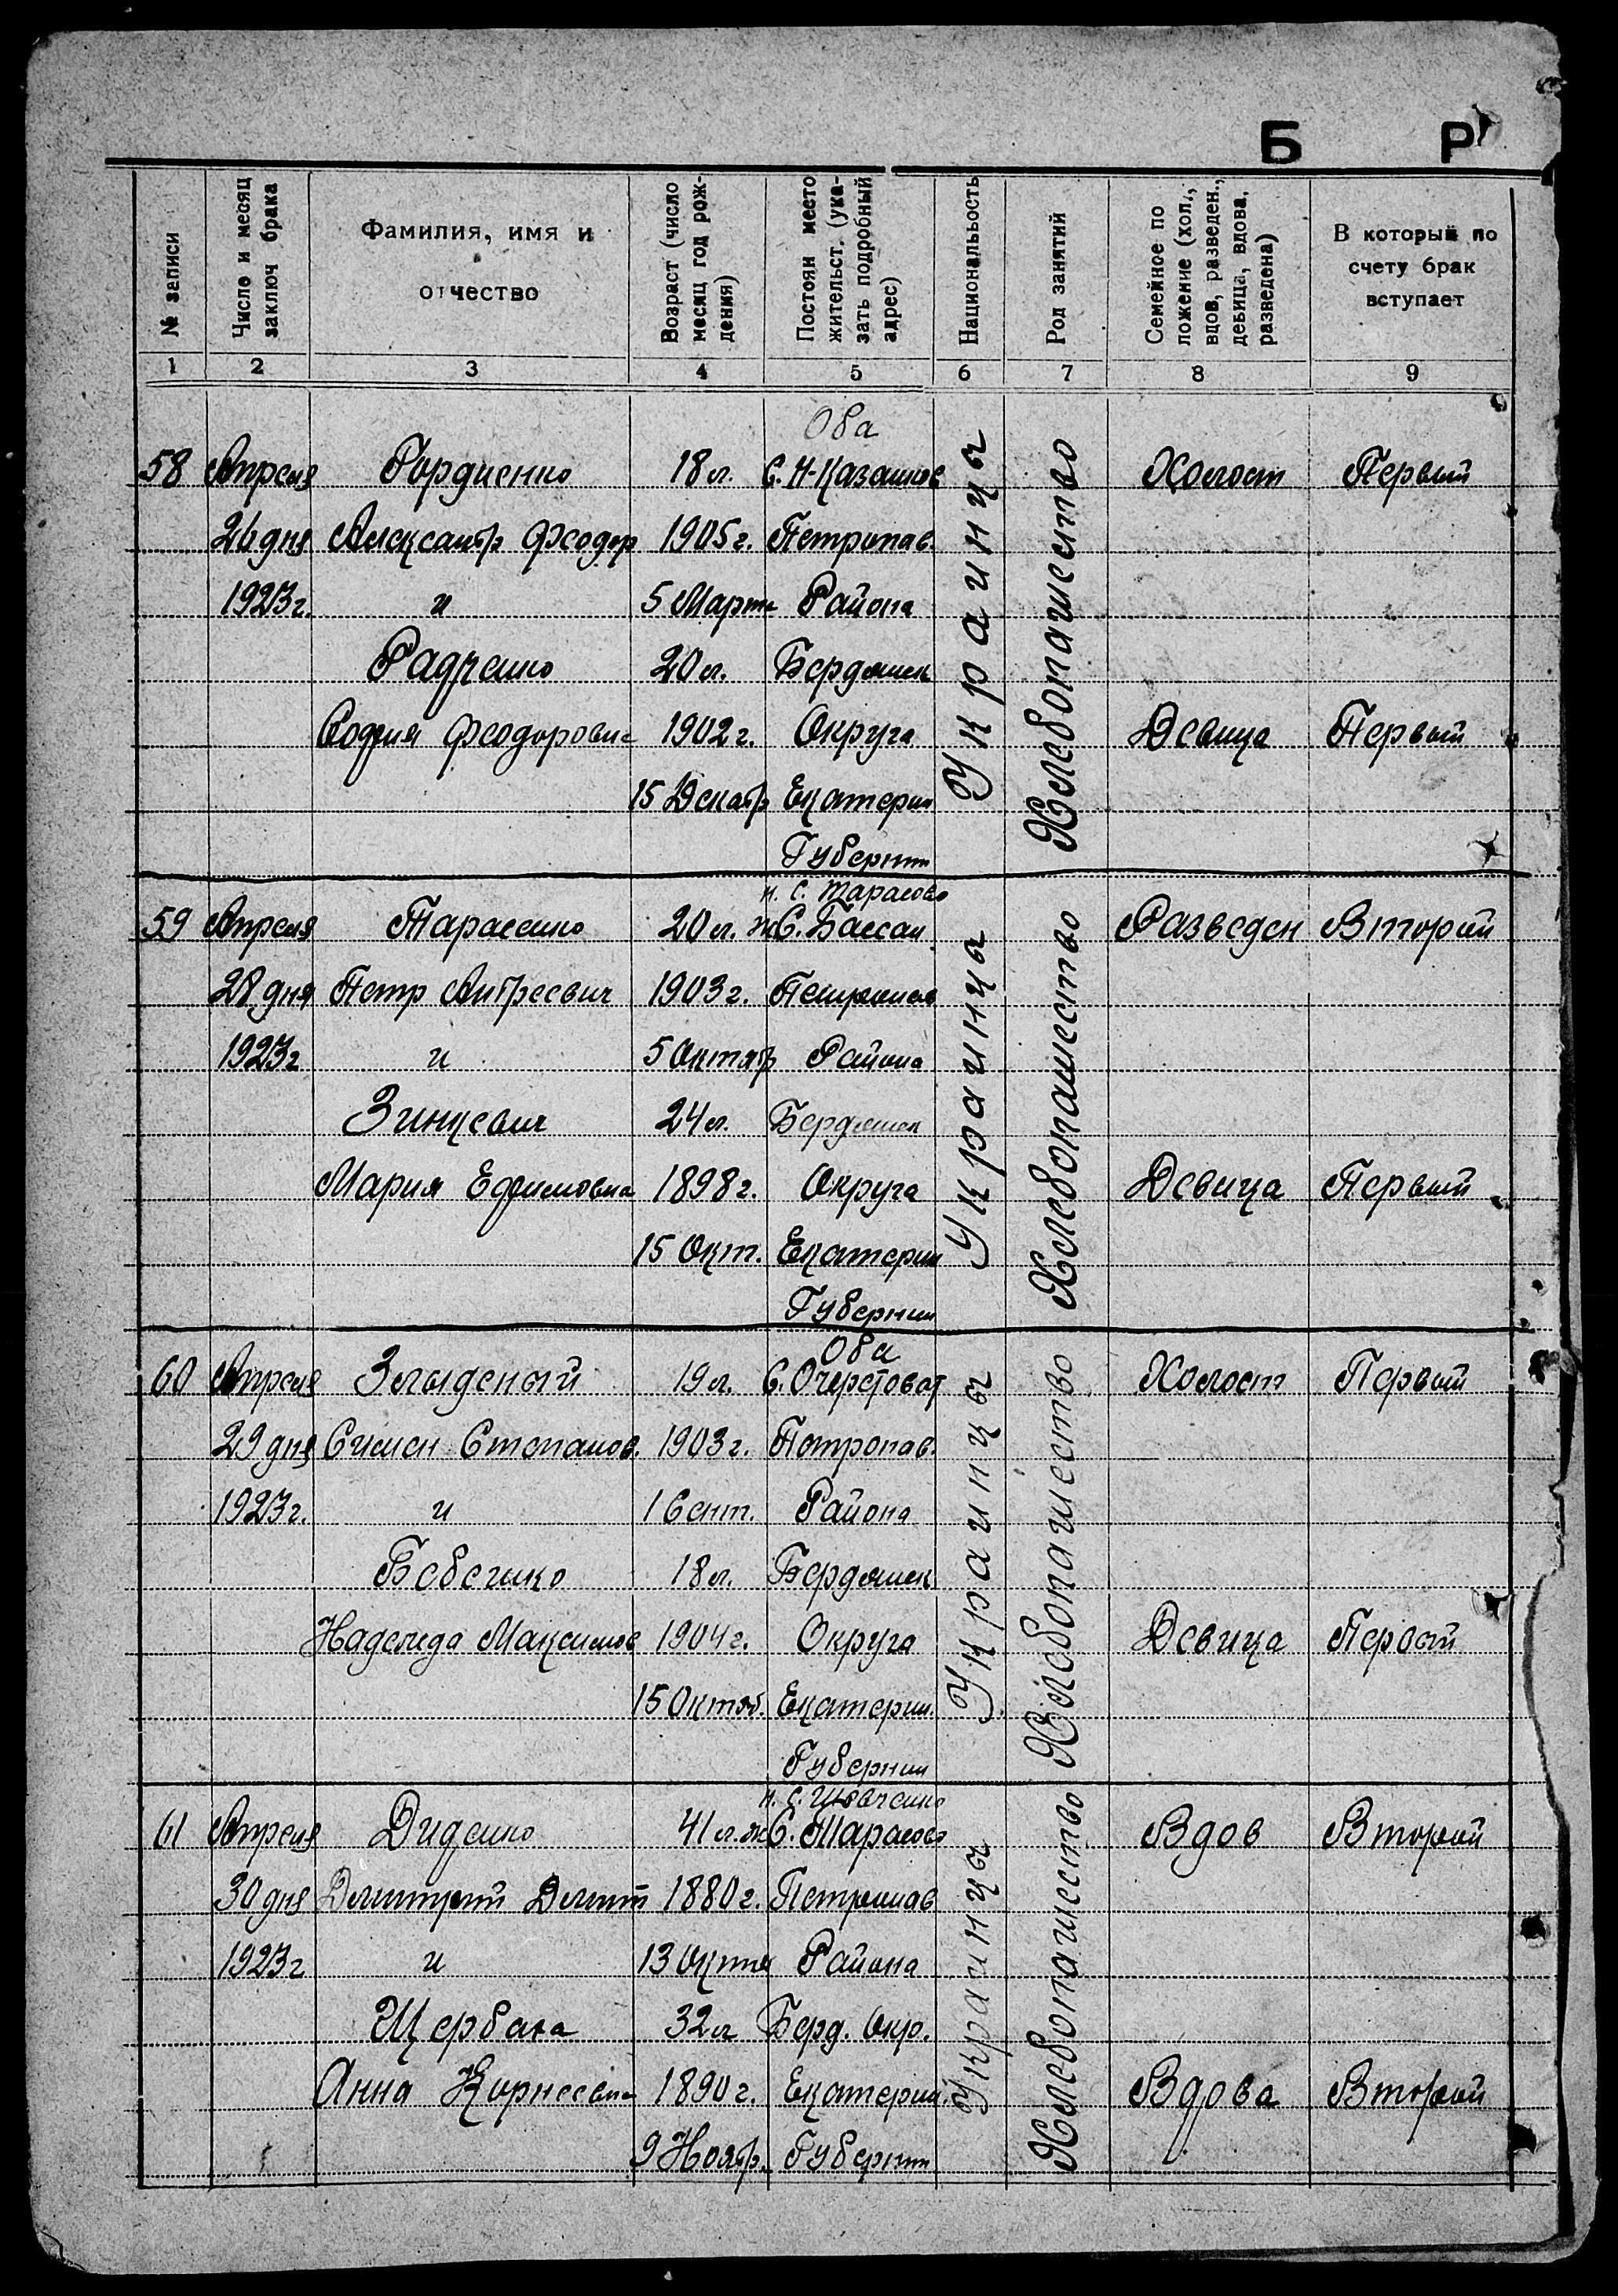 Б Р
№ записи
Число и месяц
заключ брака
Фамилия, имя и
отчество
Возраст (число
месяц год рож-
дения)
Постоян место
жительст. (ука-
зать подробный
адрес)
Национальость
Род занятий
Семейное по
ложение (хол.,
вдов, разведен.,
девица, вдова,
разведена)
В который по
счету брак
вступает
1 2 3 4 5 6 7 8 9
Оба
58 Апреля Гордиенко 18 л. С. Н-Казанков Украинцы Хлебопашество Холост Первый
26 дня Александр Феодор 1905 г. Петропав.
1923 г. и 5 Марта Района
Радченко 20 л. Бердянск
София Феодоровна 1902 г. Округа Девица Первый
15 Декабр Екатерин
Губернии
н. С. Тарасово
59 Апреля Тарасенко 20 л. ж С. Бассан Украинцы Хлебопашество Разведен Второй
28 дня Петр Андреевич 1903 г. Петропав
1923 г и 5 Октябр Района
Зинкевич 24 л. Бердянск
Мария Ефимовна 1898 г. Округа Девица Первый
15 Окт. Екатерин
Губернии
Оба
60 Апреля Злыденный 19 л. С. Очеретоват Украинцы Хлебопашество Холост Первый
29 дня Симен Степанов. 1903 г. Петропав.
1923 г. и 1 Сент. Района
18 л. Бердянск
Надежда Максимов 1904 г. Округа Девица Первый
15 Октяб. Екатерин.
Губернии
н. С. Шевченко
61 Апреля Диденко 41 л. ж С. Тарасово Украинцы Хлебопашество Вдов Второй
30 дня Дмитрий Дмит 1880 г. Петропав
1923 г и 13 Района
Щербака 32 л Берд. Окр.
Анна Корнеевна 1890 г. Екатерин. Вдова Второй
9 Ноябр. Губернии